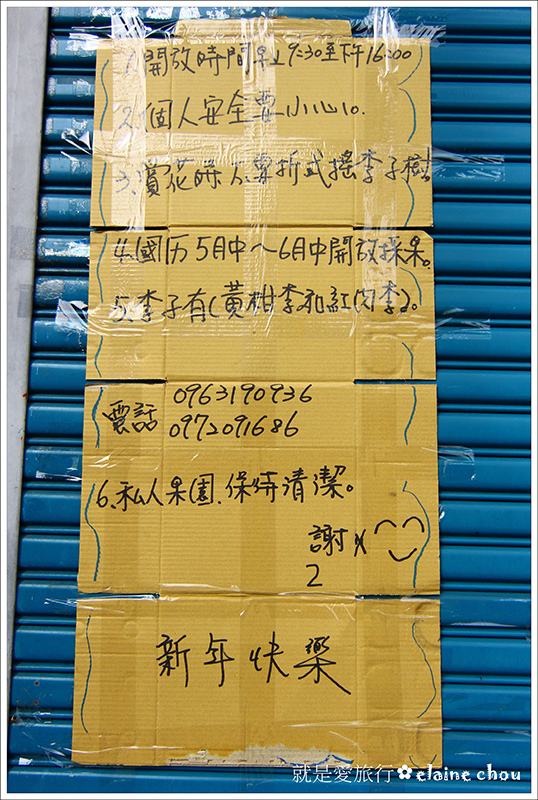 1.開放時間早上9:30至下午16:00
2.個人安全要小心。
3.賞花時不要折或搖李子樹。
4.國历5月中～6月中開放採果。
5.李子有(黃柑李和紅肉李)。
電話 0963190936
0972091686
6.私人果園、保持清潔。
謝
2
新年快樂
就是愛旅行✿elaine chou